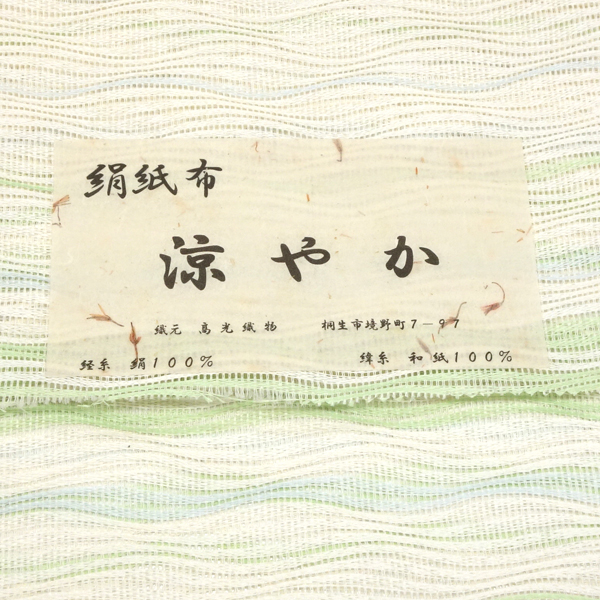 絹紙布
涼やか
織元 高光織物 桐生市境野町7-97
経糸 絹100% 緯糸 和紙100%